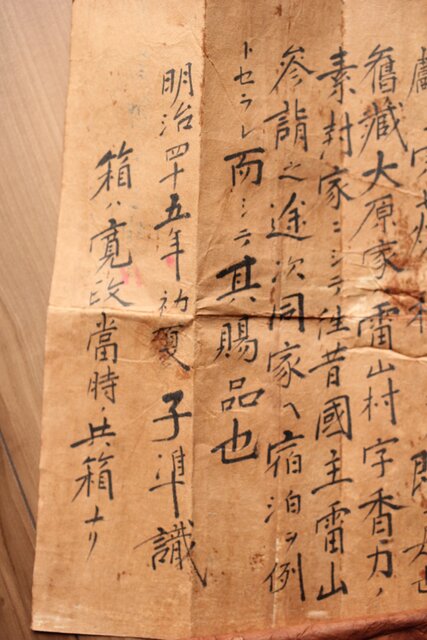 舊藏大原家ハ雷山村字香力ノ
素封家ニシテ往昔國主雷山
参詣之途次同家ヘ宿泊ヲ例
トセラレ而シテ其賜品也
明治四十五年初夏 子準識
箱ハ寛政當時ノ共箱ナリ